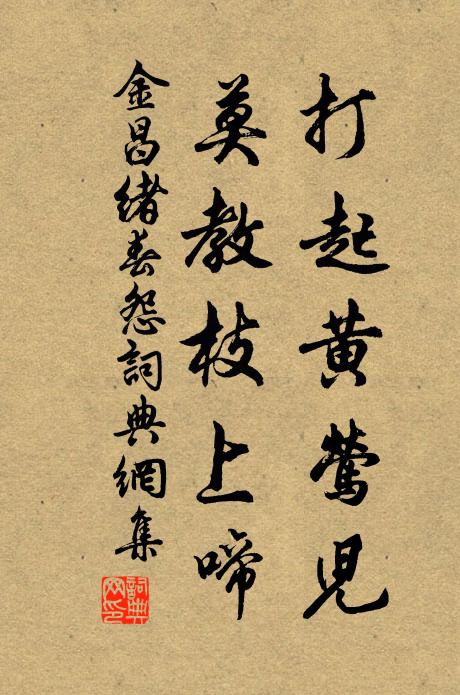 打起黄莺兒
莫教枝上啼
金昌緒春怨詞典網集
詞典網印